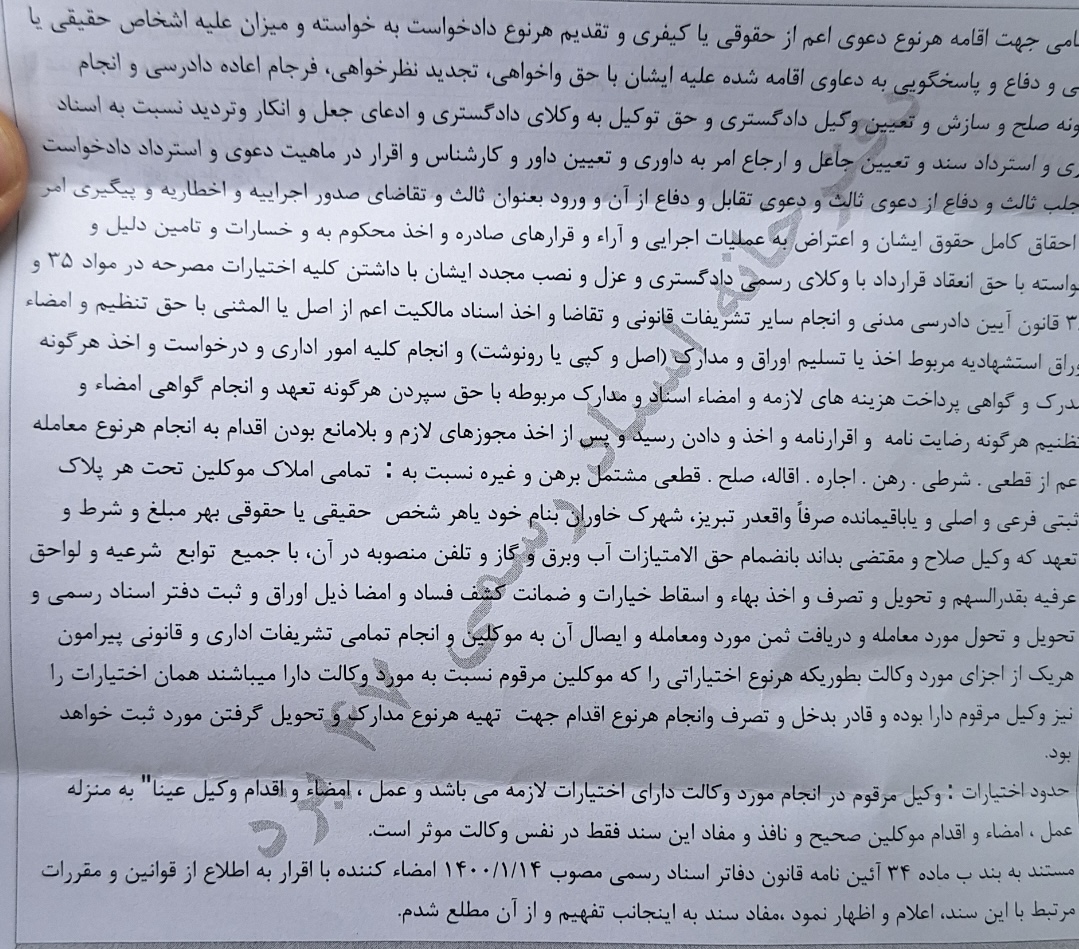 جهت اقامه هرنوع دعوی اعم از حقوقی یا کیفری و تقدیم هرنوع دادخواست به خواسته و میزان علیه اشخاص حقیقی یا
و دفاع و پاسخگویی به دعاوی اقامه شده علیه ایشان با حق واخواهی، تجدید نظرخواهی، فرجام اعاده دادرسی و انجام
صلح و سازش و تعیین وکیل دادگستری و حق توکیل به وکلای دادگستری و ادعای جعل و انکار وتردید نسبت به اسناد
و استرداد سند و تعیین جاعل و ارجاع امر به داوری و تعیین داور و کارشناس و اقرار در ماهیت دعوی و استرداد دادخواست
جلب ثالث و دفاع از دعوی ثالث و دعوی تقابل و دفاع از آن و ورود بعنوان ثالث و تقاضای صدور اجراییه و اخطاریه و پیگیری امر
احقاق کامل حقوق ایشان و اعتراض به عملیات اجرایی و آراء و قرارهای صادره و اخذ محکوم به و خسارات و تامین دلیل و
با حق انعقاد قرارداد با وکلای رسمی دادگستری و عزل و نصب مجدد ایشان با داشتن کلیه اختیارات مصرحه در مواد ۳۵ و
قانون آیین دادرسی مدنی و انجام سایر تشریفات قانونی و تقاضا و اخذ اسناد مالکیت اعم از اصل یا المثنی با حق تنظیم و امضاء
استشهادیه مربوط اخذ یا تسلیم اوراق و مدارک (اصل و کپی یا رونوشت) و انجام کلیه امور اداری و درخواست و اخذ هرگونه
مدرک و گواهی پرداخت هزینه های لازمه و امضاء اسناد و مدارک مربوطه با حق سپردن هرگونه تعهد و انجام گواهی امضاء و
تنظیم هرگونه رضایت نامه و اقرارنامه و اخذ و دادن رسید و پس از اخذ مجوزهای لازم و بلامانع بودن اقدام به انجام هرنوع معامله
اعم از قطعی . شرطی . رهن . اجاره . اقاله، صلح . قطعی مشتمل برهن و غیره نسبت به : تمامی املاک موکلین تحت هر پلاک
ثبتی فرعی و اصلی و یاباقیمانده صرفاً واقعدر تبریز، شهرک خاوران بنام خود یاهر شخص حقیقی یا حقوقی بهر مبلغ و شرط و
تعهد که وکیل صلاح و مقتضی بداند بانضمام حق الامتیازات آب وبرق و گاز و تلفن منصوبه در آن، با جمیع توابع شرعیه و لواحق
عرفیه بقدرالسهم و تحویل و تصرف و اخذ بهاء و اسقاط خیارات و ضمانت کشف فساد و امضا ذیل اوراق و ثبت دفتر اسناد رسمی و
تحویل و تحول مورد معامله و دریافت ثمن مورد ومعامله و ایصال آن به موکلین و انجام تمامی تشریفات اداری و قانونی پیرامون
هریک از اجزای مورد وکالت بطوریکه هرنوع اختیاراتی را که موکلین مرقوم نسبت به مورد وکالت دارا میباشند همان اختیارات را
نیز وکیل مرقوم دارا بوده و قادر بدخل و تصرف وانجام هرنوع اقدام جهت تهیه هرنوع مدارک و تحویل گرفتن مورد ثبت خواهد
بود.
حدود اختیارات : وکیل مرقوم در انجام مورد وکالت دارای اختیارات لازمه می باشد و عمل ، امضاء و اقدام وکیل عینا" به منزله
عمل ، امضاء و اقدام موکلین صحیح و نافذ و مفاد این سند فقط در نفس وکالت موثر است.
مستند به بند ب ماده ۳۴ آئین نامه قانون دفاتر اسناد رسمی مصوب ۱۴۰۰/۱/۱۴ امضاء کننده با اقرار به اطلاع از قوانین و مقررات
مرتبط با این سند، اعلام و اظهار نمود ،مفاد سند به اینجانب تفهیم و از آن مطلع شدم.